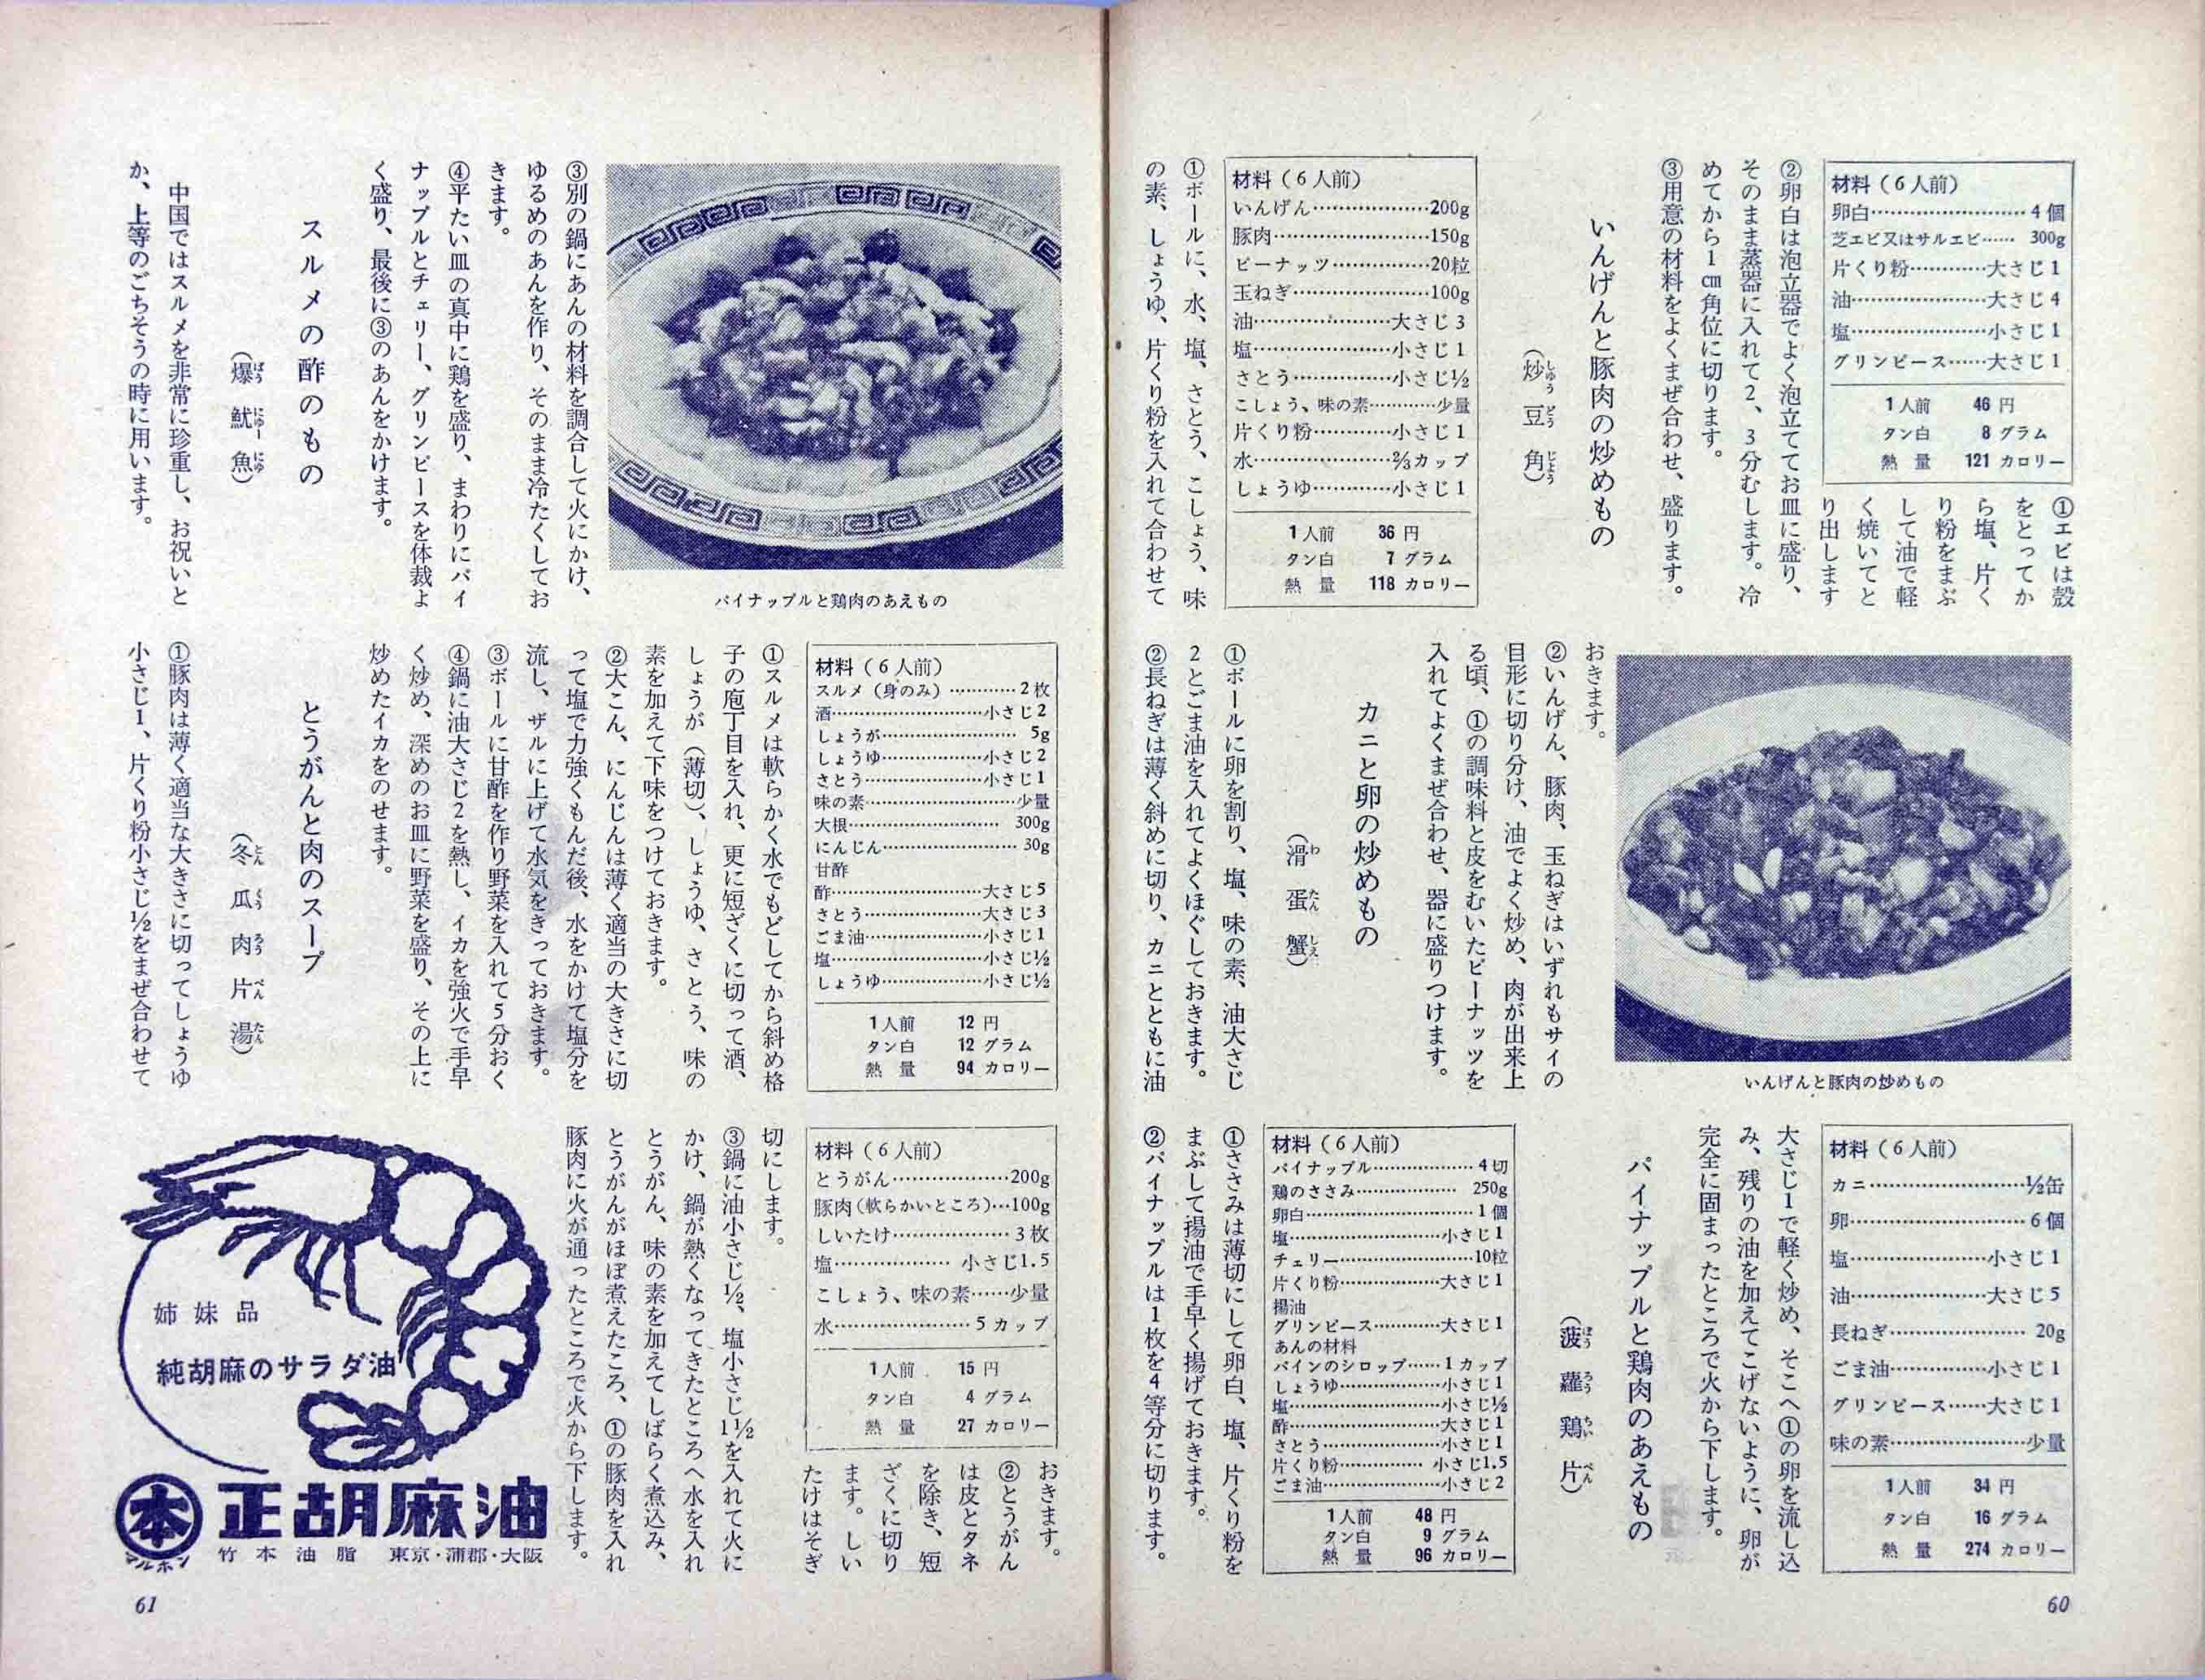 材料（6人前）
卵白…………………… 4個
芝エビ又はサルエビ…… 300g
片くり粉…………大さじ1
油…………………大さじ4
塩…………………小さじ1
グリンピース……大さじ1
1人前 46 円
タン白 8 グラム
熱量 121 カロリー
①エビは殻
をとってか
ら塩、片く
り粉をまぶ
して油で軽
く焼いてと
り出します
②卵白は泡立器でよく泡立ててお皿に盛り、
そのまま蒸器に入れて2、3分むします。冷
めてから1㎝角位に切ります。
③用意の材料をよくまぜ合わせ、盛ります。
いんげんと豚肉の炒めもの
（炒豆角）
しゅう どう じょう
材料（6人前）
いんげん………………200g
豚肉……………………150g
ピーナッツ……………20粒
玉ねぎ…………………100g
油…………………大さじ3
塩…………………小さじ1
さとう……………小さじ½
こしょう、味の素…………少量
片くり粉…………小さじ1
水…………………⅔カップ
しょうゆ…………小さじ1
1人前 36 円
タン白 7 グラム
熱量 118 カロリー
①ボールに、水、塩、さとう、こしょう、味
の素、しょうゆ、片くり粉を入れて合わせて
おきます。
②いんげん、豚肉、玉ねぎはいずれもサイの
目形に切り分け、油でよく炒め、肉が出来上
る頃、①の調味料と皮をむいたピーナッツを
入れてよくまぜ合わせ、器に盛りつけます。
いんげんと豚肉の炒めもの
カニと卵の炒めもの
（滑蛋蟹）
わ たん しえ
①ボールに卵を割り、塩、味の素、油大さじ
2とごま油を入れてよくほぐしておきます。
②長ねぎは薄く斜めに切り、カニとともに油
材料（6人前）
カニ……………………½缶
卵………………………6個
塩…………………小さじ1
油…………………大さじ5
長ねぎ…………………20g
ごま油……………小さじ1
グリンピース……大さじ1
味の素…………………少量
1人前 34 円
タン白 16 グラム
熱量 274 カロリー
大さじ1で軽く炒め、そこへ①の卵を流し込
み、残りの油を加えてこげないように、卵が
完全に固まったところで火から下します。
パイナップルと鶏肉のあえもの
（菠蘿鶏片）
ぽう ろう ちい ぺん
材料（6人前）
パイナップル………………4切
鶏のささみ……………… 250g
卵白…………………………1個
塩……………………小さじ1
チェリー……………………10粒
片くり粉……………大さじ1
揚油
グリンピース………大さじ1
あんの材料
パインのシロップ……1カップ
しょうゆ……………小さじ1
塩……………………小さじ½
酢……………………大さじ1
さとう………………小さじ1
片くり粉…………… 小さじ1.5
ごま油………………小さじ2
1人前 48 円
タン白 9 グラム
熱量 96 カロリー
①ささみは薄切にして卵白、塩、片くり粉を
まぶして揚油で手早く揚げておきます。
②パイナップルは1枚を4等分に切ります。
60
パイナップルと鶏肉のあえもの
③別の鍋にあんの材料を調合して火にかけ、
ゆるめのあんを作り、そのまま冷たくしてお
きます。
④平たい皿の真中に鶏を盛り、まわりにパイ
ナップルとチェリー、グリンピースを体裁よ
く盛り、最後に③のあんをかけます。
スルメの酢のもの
（爆魷魚）
ぱう にゅー にゅ
中国ではスルメを非常に珍重し、お祝いと
か、上等のごちそうの時に用います。
材料（6人前）
スルメ（身のみ）…………2枚
酒………………………小さじ2
しょうが…………………… 5g
しょうゆ………………小さじ2
さとう…………………小さじ1
味の素………………………少量
大根……………………… 300g
にんじん……………………30g
甘酢
酢………………………大さじ5
さとう…………………大さじ3
ごま油…………………小さじ1
塩………………………小さじ½
しょうゆ………………小さじ½
1人前 12 円
タン白 12 グラム
熱量 94 カロリー
①スルメは軟らかく水でもどしてから斜め格
子の庖丁目を入れ、更に短ざくに切って酒、
しょうが（薄切）、しょうゆ、さとう、味の
素を加えて下味をつけておきます。
②大こん、にんじんは薄く適当の大きさに切
って塩で力強くもんだ後、水をかけて塩分を
流し、ザルに上げて水気をきっておきます。
③ボールに甘酢を作り野菜を入れて5分おく
④鍋に油大さじ2を熱し、イカを強火で手早
く炒め、深めのお皿に野菜を盛り、その上に
炒めたイカをのせます。
とうがんと肉のスープ
（冬瓜肉片湯）
とん くう ろう ぺん たん
①豚肉は薄く適当な大きさに切ってしょうゆ
小さじ1、片くり粉小さじ½をまぜ合わせて
材料（6人前）
とうがん………………200g
豚肉（軟らかいところ）…100g
しいたけ………………3枚
塩……………… 小さじ1.5
こしょう、味の素……少量
水…………………5カップ
1人前 15 円
タン白 4 グラム
熱量 27 カロリー
おきます。
②とうがん
は皮とタネ
を除き、短
ざくに切り
ます。しい
たけはそぎ
切にします。
③鍋に油小さじ½、塩小さじ1½を入れて火に
かけ、鍋が熱くなってきたところへ水を入れ
とうがん、味の素を加えてしばらく煮込み、
とうがんがほぼ煮えたころ、①の豚肉を入れ
豚肉に火が通ったところで火から下します。
姉妹品
純胡麻のサラダ油
本 正胡麻油
マルホン
竹本油脂 東京・蒲郡・大阪
61